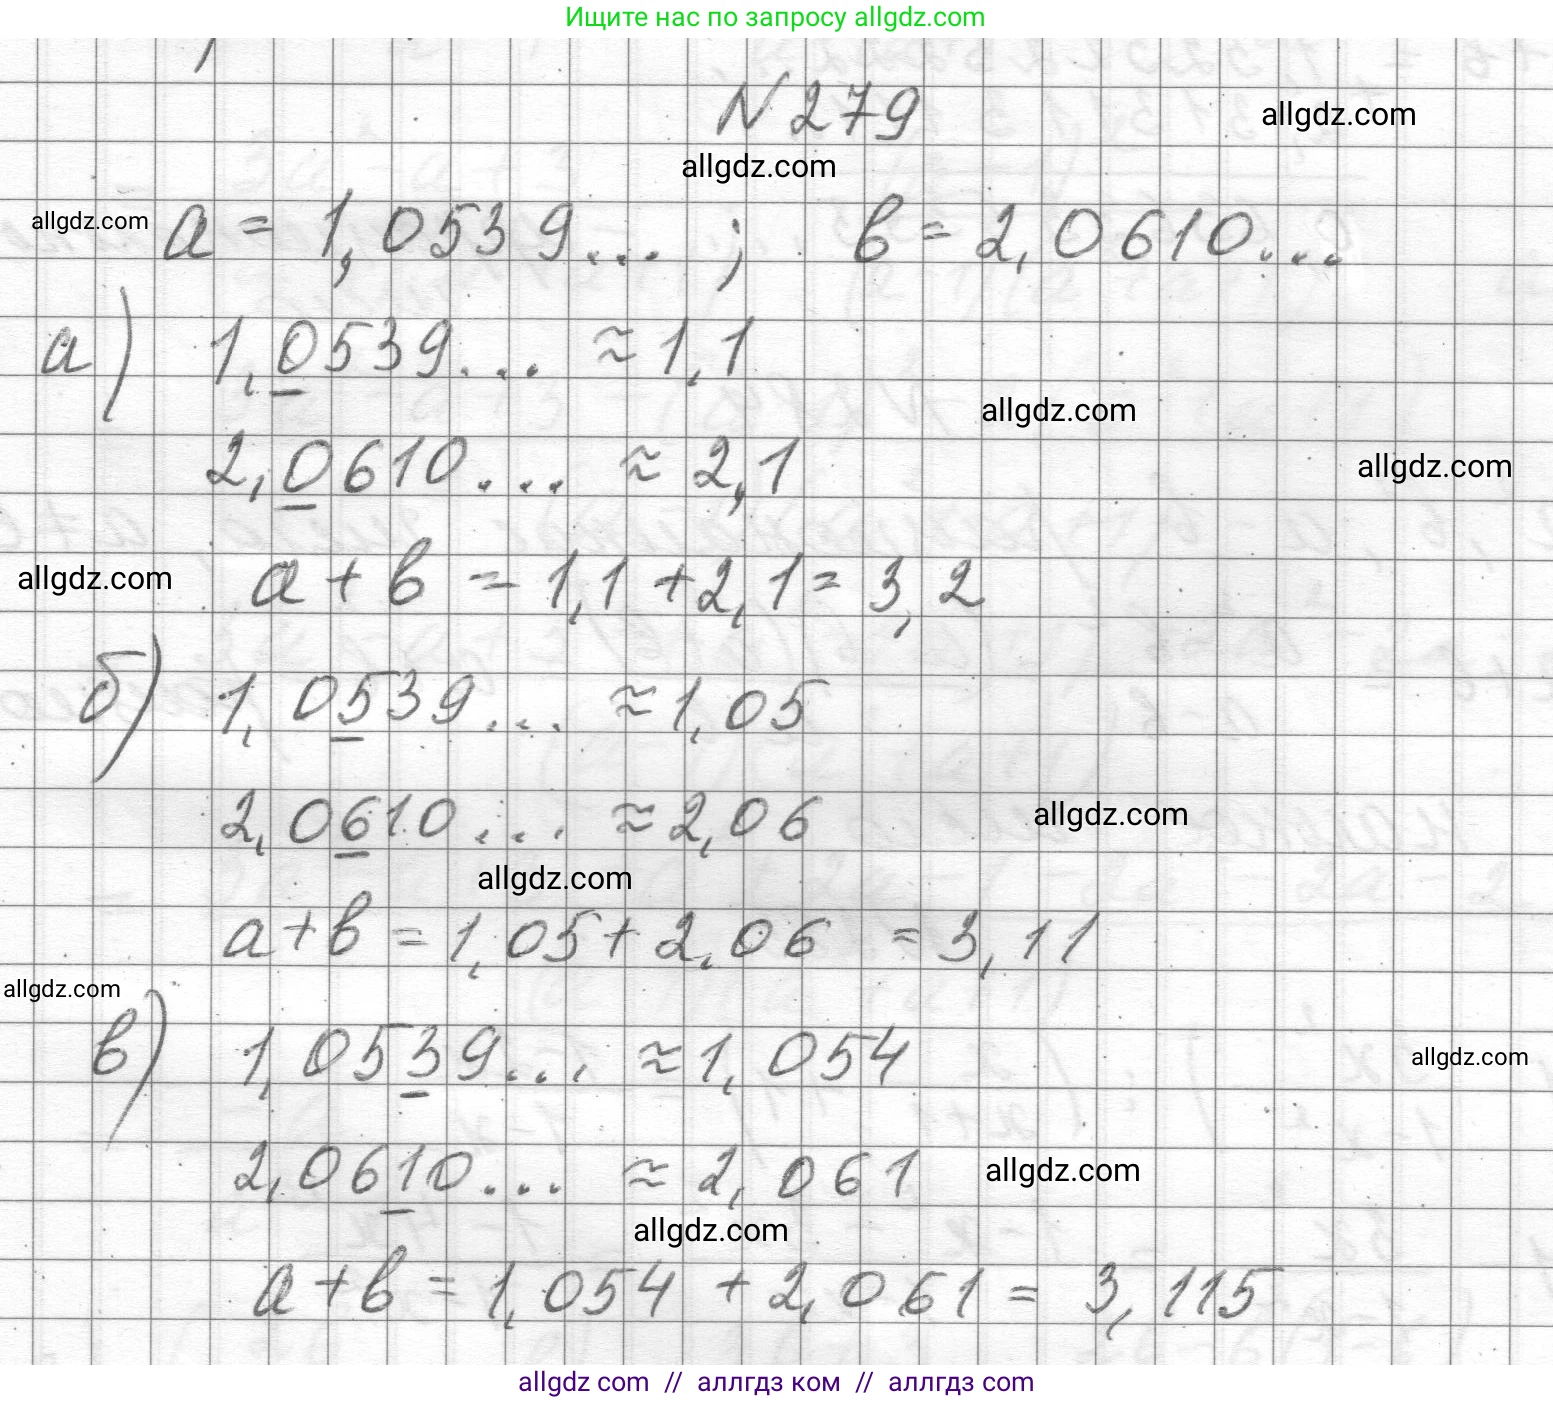 Ищите нас по запросу allgdz.com
N 279
allgdz.com
allgdz.com
allgdz.com
a = 1,0539... ; в = 2,0610...
а) 1,0539... ≈ 1,1
allgdz.com
2,0610... ≈ 2,1
allgdz.com
allgdz.com
a + в = 1,1 + 2,1 = 3,2
б) 1,0539... ≈ 1,05
2,0610... ≈ 2,06
allgdz.com
allgdz.com
a + в = 1,05 + 2,06 = 3,11
allgdz.com
в) 1,0539... ≈ 1,054
allgdz.com
2,0610... ≈ 2,061
allgdz.com
allgdz.com
a + в = 1,054 + 2,061 = 3,115
allgdz com // аллгдз ком // аллгдз com